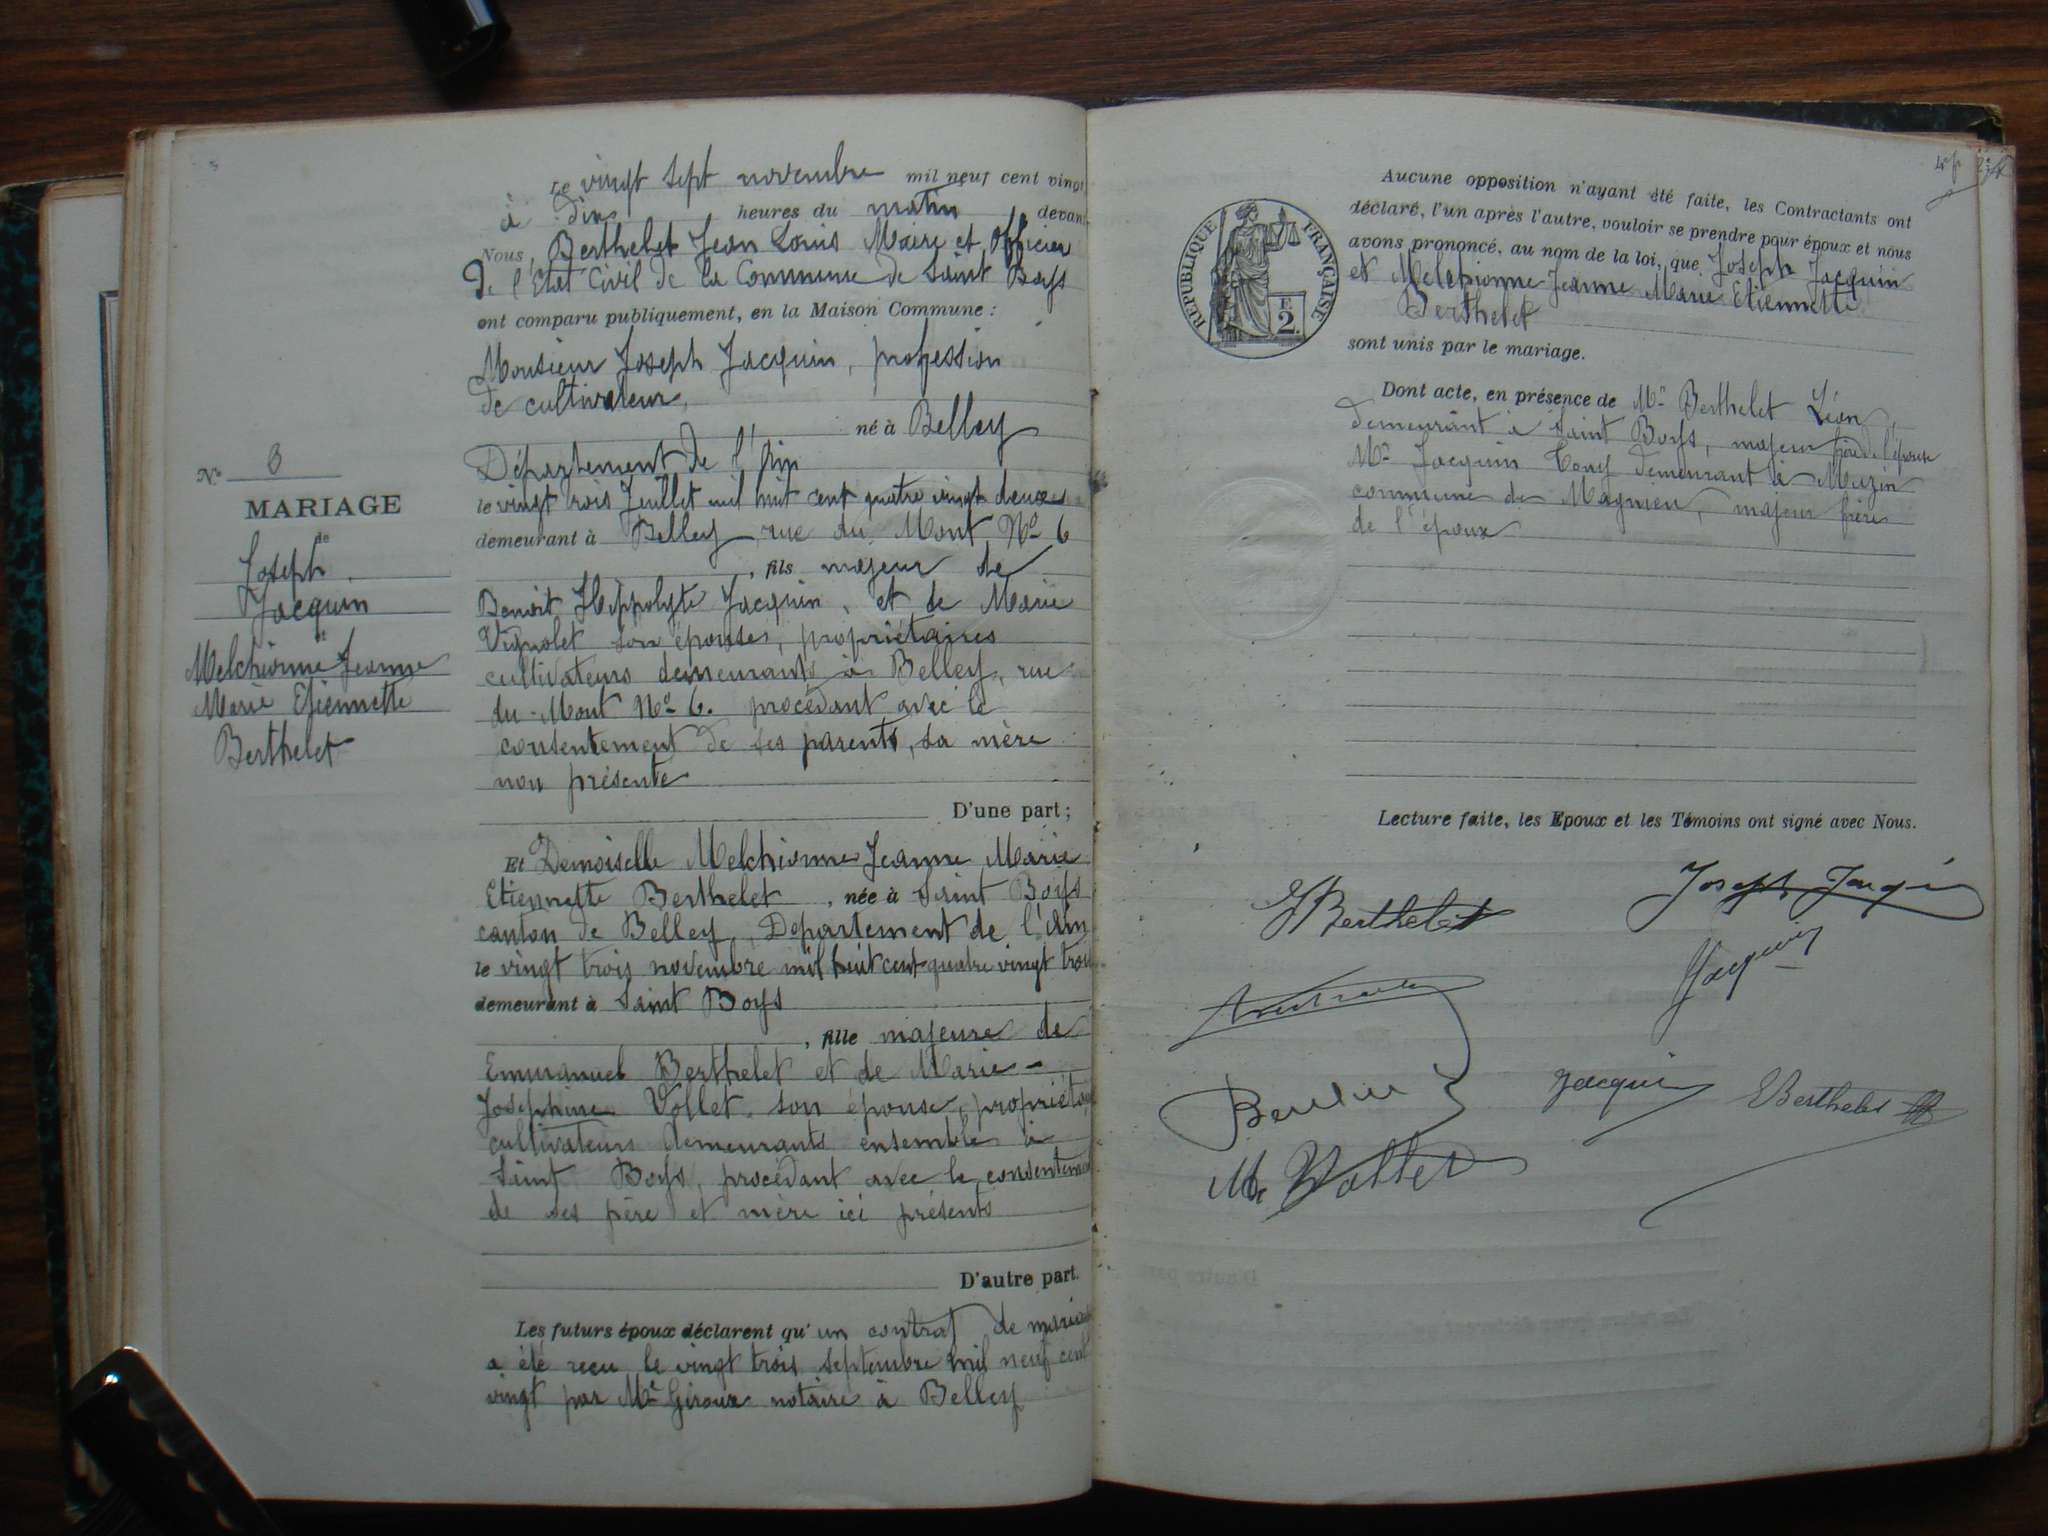 Le vingt sept novembre mil neuf cent vingt
à dix heures du matin devant
Nous, Berthelet Jean Louis Maire et Officier
de l'Etat Civil de la Commune de Saint Boys
ont comparu publiquement, en la Maison Commune :
Monsieur Joseph Jacquin, profession
de cultivateur,
né à Belley
Département de l'Ain
le vingt trois Juillet mil huit cent quatre vingt deux
demeurant à Belley, rue du Mont No 6
, fils majeur de
Benoit Hippolyte Jacquin, et de Marie
Vignolet son épouse, propriétaires
cultivateurs demeurants à Belley, rue
du Mont No 6. procédant avec le
consentement de ses parents, sa mère
non présente
D'une part ;
Et Demoiselle Melchionne Jeanne Marie
Etiennette Berthelet, née à Saint Boys
canton de Belley, Département de l'Ain
le vingt trois novembre mil huit cent quatre vingt trois
demeurant à Saint Boys
, fille majeure de
Emmanuel Berthelet et de Marie-
Josephine Vollet son épouse, propriétai
cultivateurs demeurants ensemble à
Saint Boys, procédant avec le consenteme
de ses père et mère ici présents
D'autre part.
Les futurs époux déclarent qu'un contrat de mariage
a été reçu le vingt trois septembre mil neuf cent
vingt par Me Giroux notaire à Belley
No 3
MARIAGE
de
Joseph
Jacquin
et
Melchionne Jeanne
Marie Etiennette
Berthelet
REPUBLIQUE FRANÇAISE
F.
2
Aucune opposition n'ayant été faite, les Contractants ont
déclaré, l'un après l'autre, vouloir se prendre pour époux et nous
avons prononcé, au nom de la loi, que Joseph Jacquin
et Melchionne Jeanne Marie Etiennette
Berthelet
sont unis par le mariage.
Dont acte, en présence de Mr Berthelet Léon,
demeurant à Saint Boys, majeur frère de l'épouse
Mr Jacquin Tony demeurant à Muzin
commune de Magnieu, majeur frère
de l'époux
Lecture faite, les Epoux et les Témoins ont signé avec Nous.
Berthelet
Joseph Jacquin
Jacquin
Jacquin
Berthelet
M Vollet